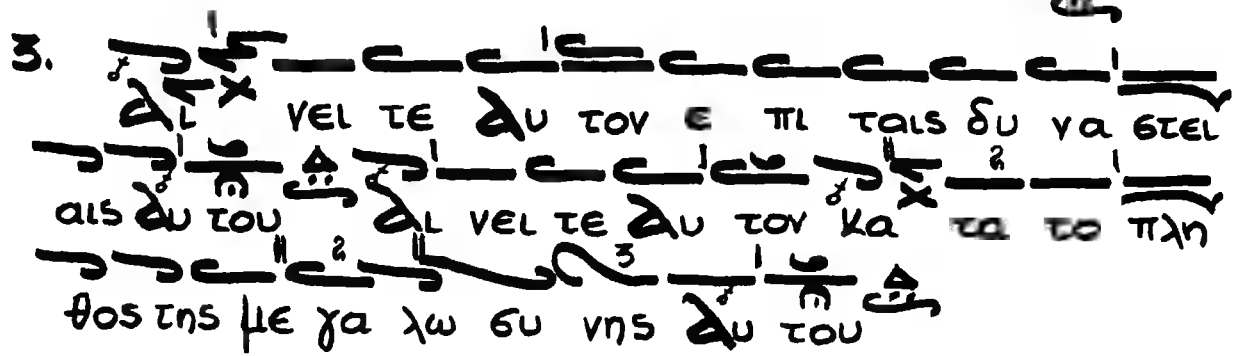 3. Αι νει τε αυ τον ε πι ταις δυ να στει
αις αυ του αι νει τε αυ τον κα τα το πλη
θος της με γα λω συ νης αυ του